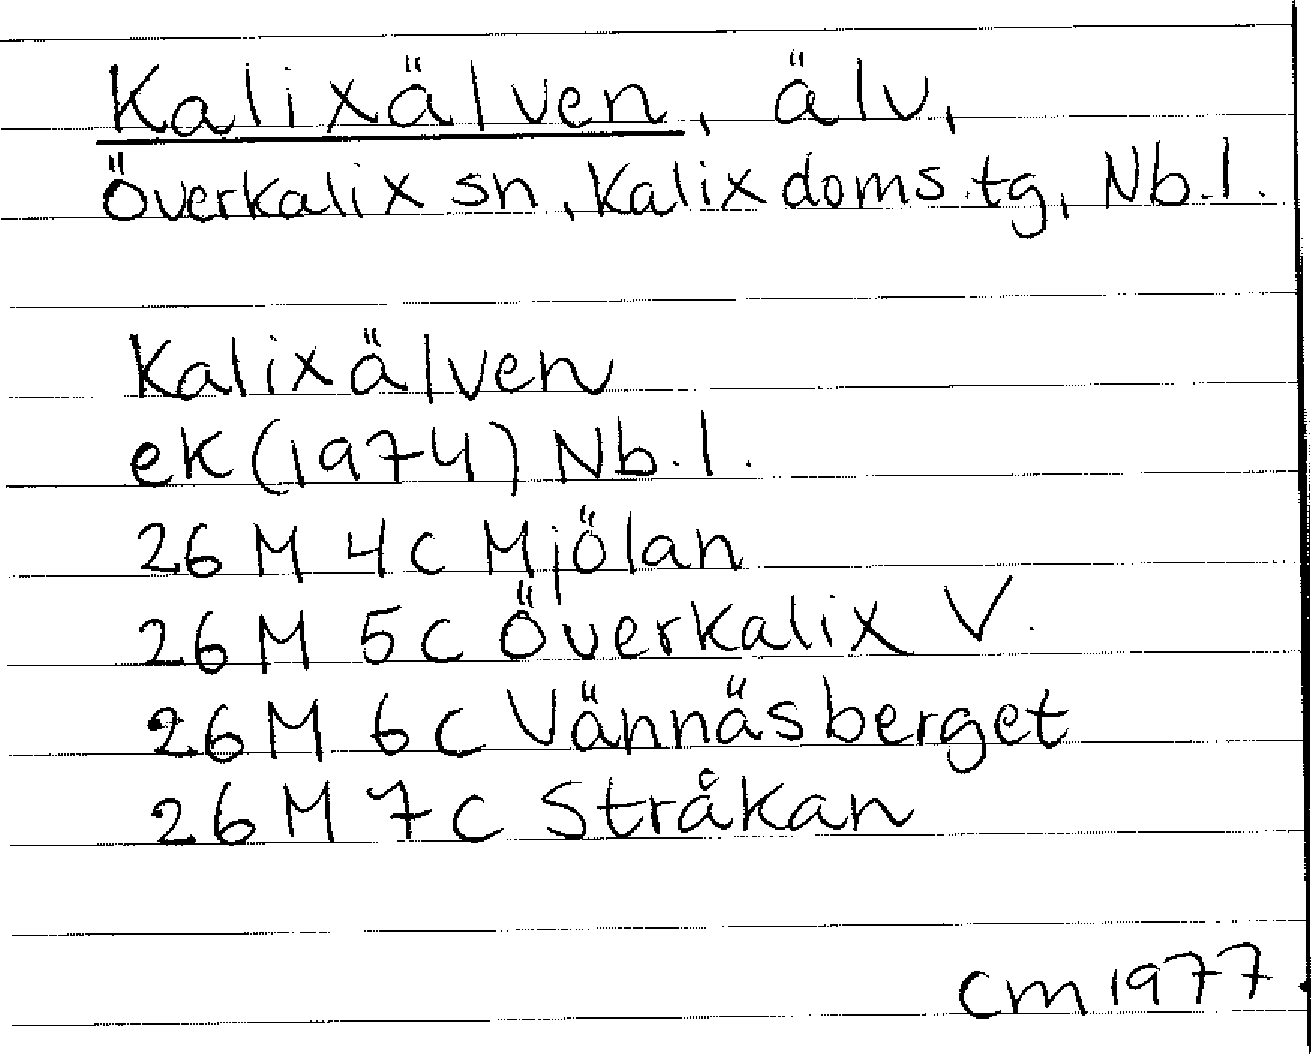 Kalixälven, älv,
Överkalix sn, Kalix doms.tg, Nb.l.
Kalixälven
ek (1974) Nb.l.
26 M 4c Mjölan
26 M 5c Överkalix V.
26 M 6c Vännäsberget
26 M 7c Stråkan
CM 1977